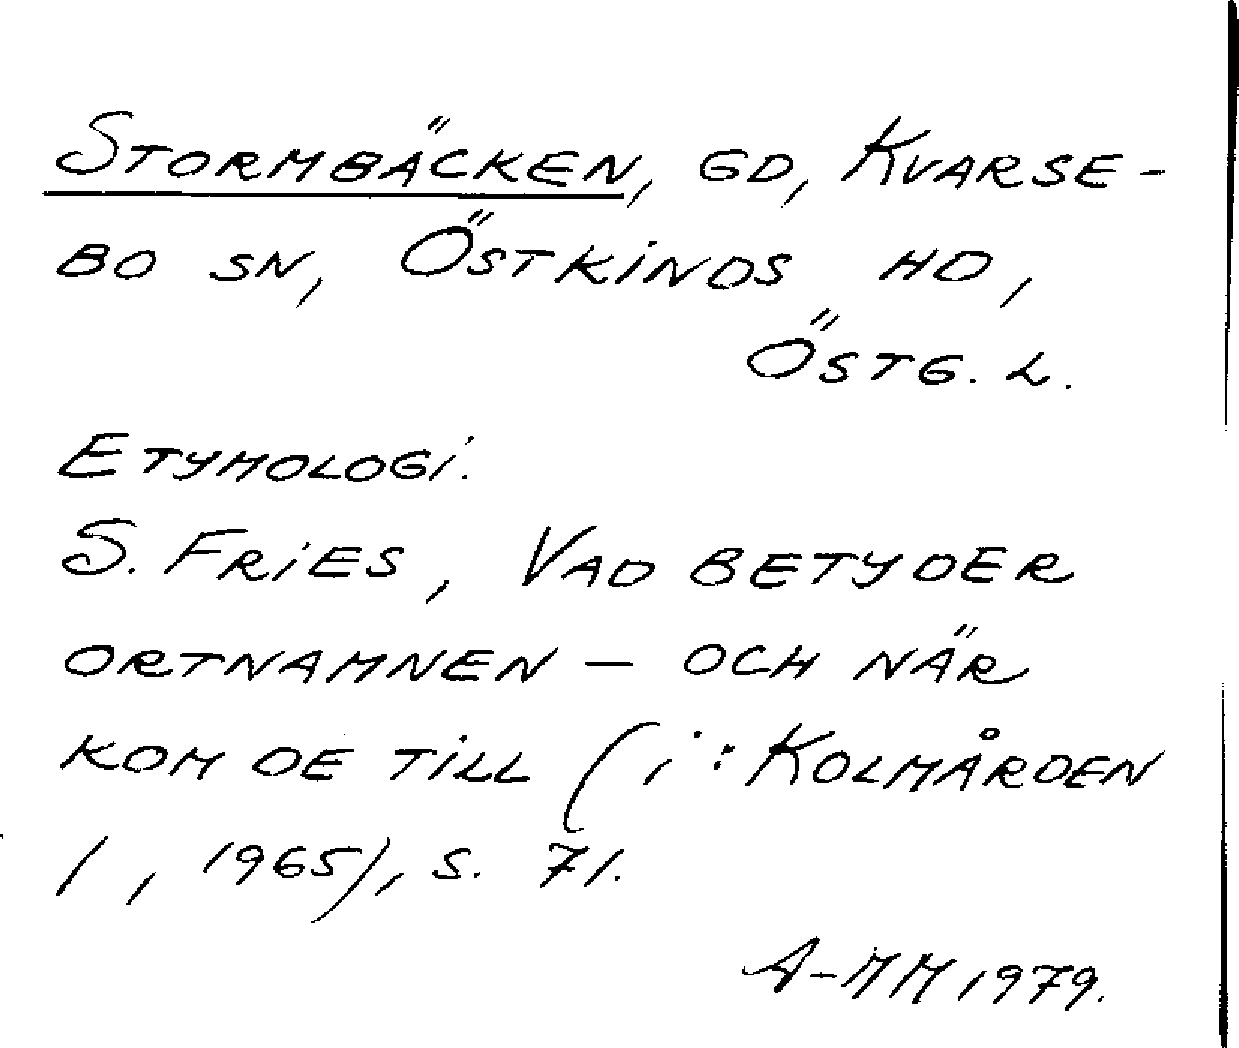 Stormbäcken, gd, Kvarse-
bo sn, Östkinds hd,
Östg. l.
Etymologi.
S. Fries, Vad betyder
ortnamnen – och när
kom de till (i: Kolmården
1, 1965), s. 71.
A-MM 1979.